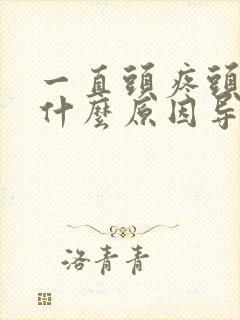 一直頭疼頭
什麼原因导
洛青青